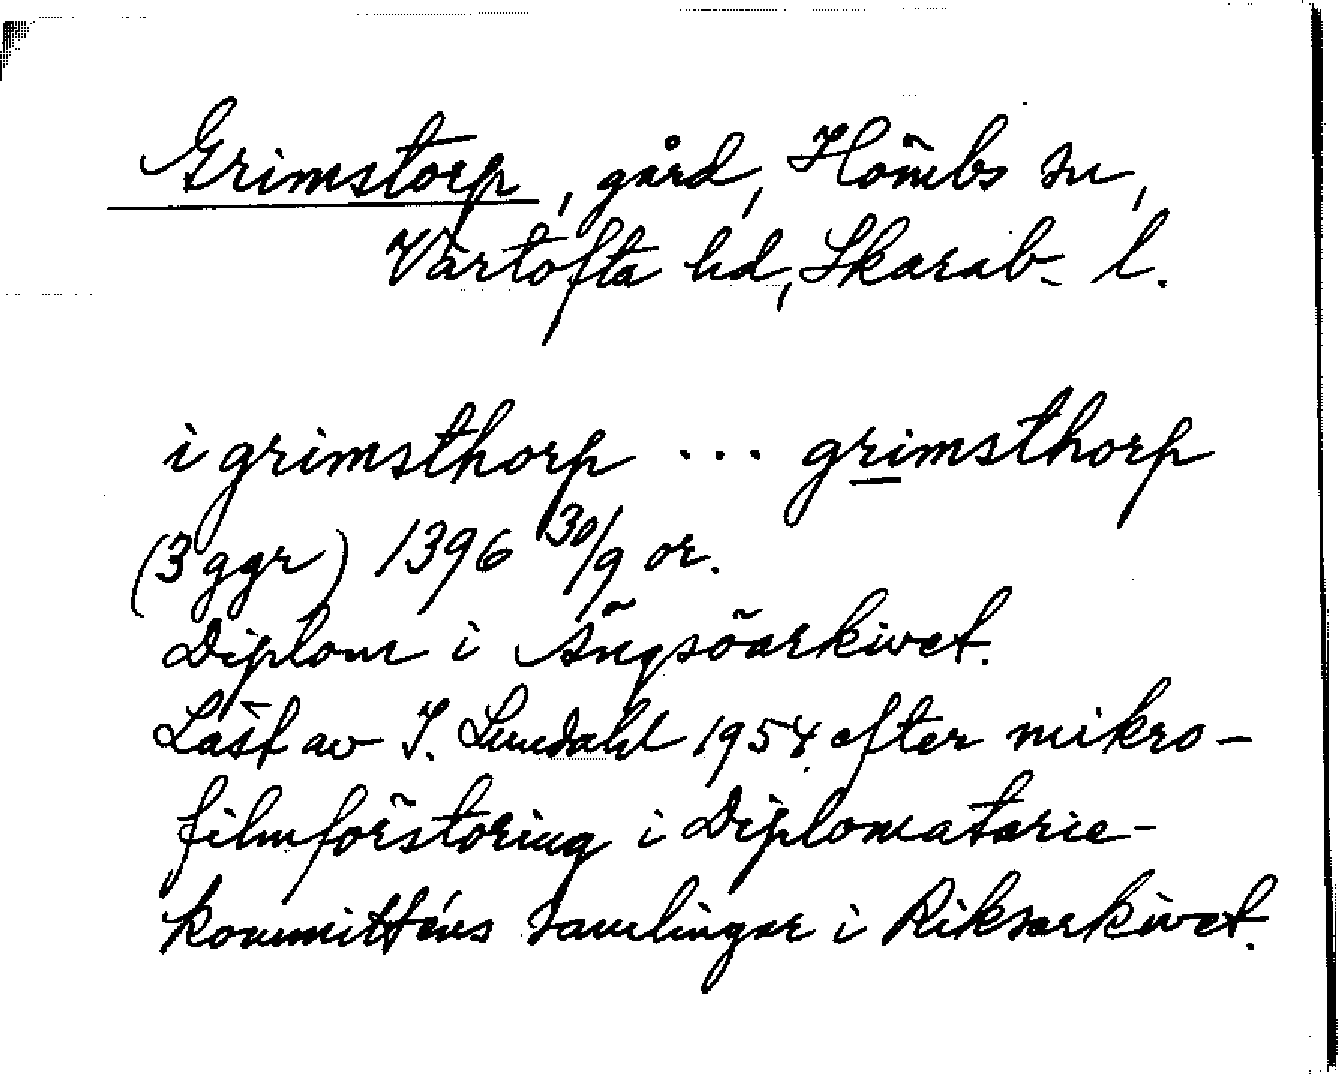 Grimstorp, gård, Hömbs sn,
Vartofta hd, Skarab. l.
i grimsthorp ... grimsthorp
(3 ggr) 1396 30/9 or.
Diplom i Ängsöarkivet.
Läst av I. Lundahl 1954 efter mikro-
filmförstoring i Diplomatarie-
kommitténs samlingar i Riksarkivet.